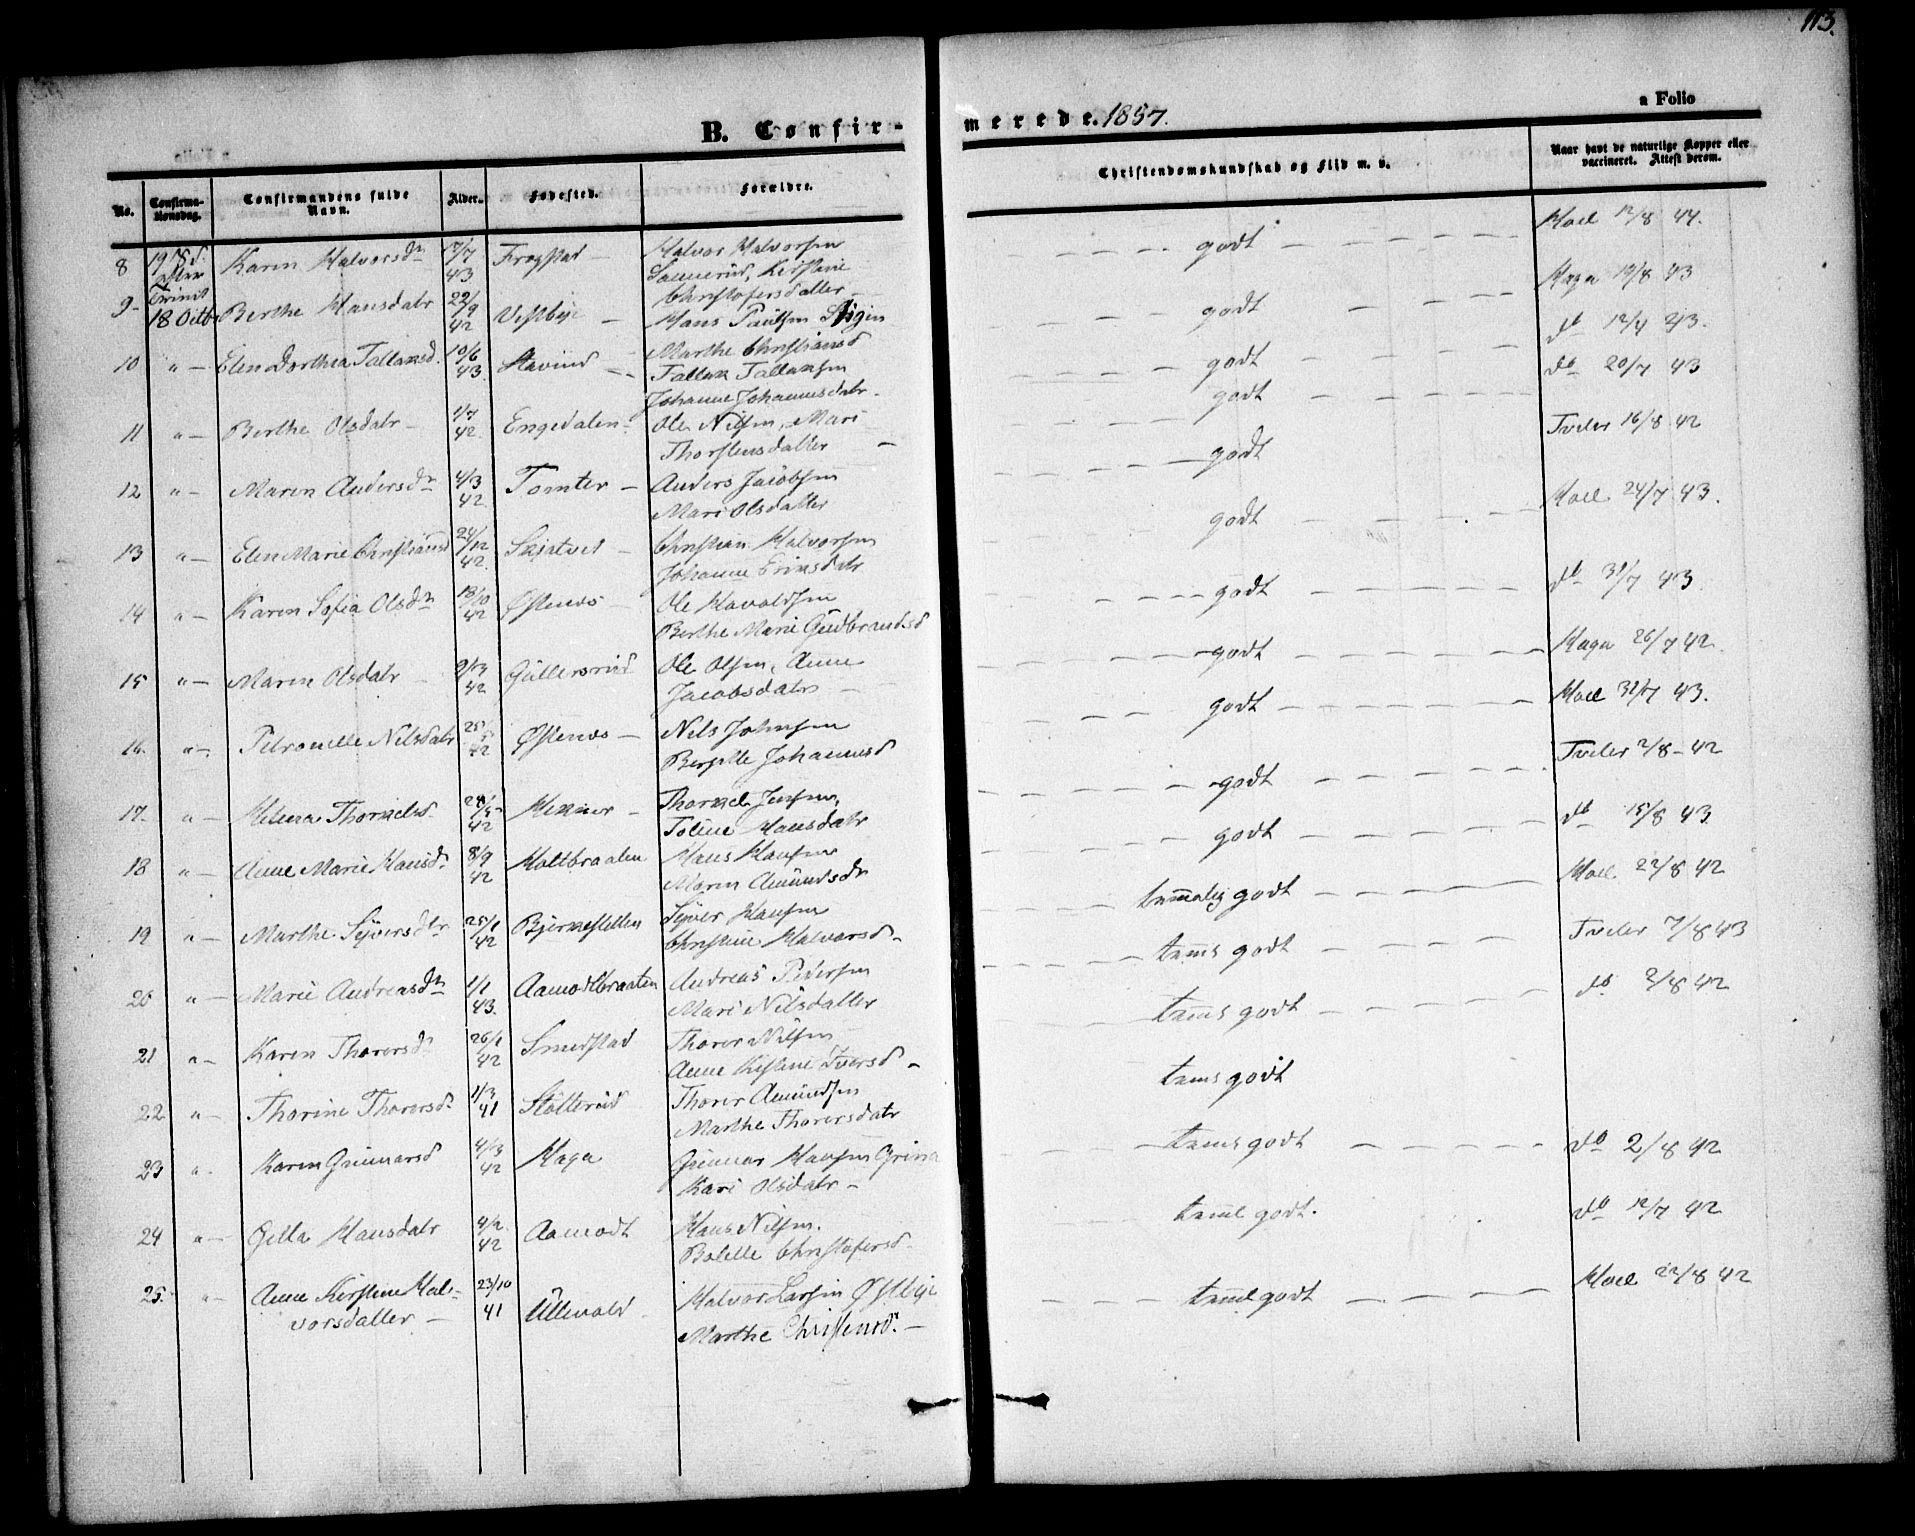 113.
a Folio
B. Confirmerede. 1857.
No. Confirmationsdag. Confirmandens fulde Navn. Alder. Fødested. Forældre. Christendomskundskab og Flid m. v. Naar havt de naturlige Kopper eller vaccineret. Attest derom.
8 19 S. Karen Halvorsdr 7/7 43 Frogstad - Halvor Halvorsen godt Moll 12/8 44.
efter Kirstine
Trinit Christofersdatter -
9 18 Octbr Berthe Hansdatr 22/9 42 Vestbye - Hans Paulsen godt Haga 19/8 43
Marthe Christiansd
10 " - Elen Dorthea Tallaksd. 10/6 43. Havind - Tallak Tallaksen godt do 12/4 43.
Johanne Johannesdatr.
11 " - Berthe Olsdatr - 1/7 42. Engedalen - Ole Nilsen, Mari godt do 20/7 43
Thorstensdatter -
12 " - Maren Andersdr 4/3 42. Tomter - Anders Jacobsen godt Tveter 16/8 42
Mari Olsdatter
13 " - Elen Marie Christiansd 24/12 42. Skjatvet - Christian Halvorsen godt Moll 24/7 43.
Johanne Erinsdatr
14 " - Karen Sofia Olsdr 18/10 42 Østenes Ole Havaldsen godt do 31/7 43.
Berthe Marie Gudbrandsd
15 " - Maren Olsdatr - 9/3 42 Gullersrud Ole Olsen, Anne godt Haga 26/7 42.
Jacobsdatr -
16. " - Petronelle Nilsdatr 25/5 42 Østenes - Nils Johnsen godt Moll 31/7 43.
Bergitte Johannesd
17. " - Helena Thorkelsd. 28/5 42 - Thorkel Jensen, godt Tveter 2/8 - 42
Toline Hansdatr
18 " - Anne Marie Hansdr 8/9 42 Holtbraaten Hans Hansen godt do 15/8 43
Maren Amundsdr
19 " - Marthe Syversdtr 25/1 42 Bjørnestellen Syver Hansen temmelig godt Moll 22/8 42
Christine Halvorsd -
20 " - Marie Andreasdr 1/1 43. Aamodtbraaten Andreas Pedersen tems godt Tveter 7/8 43
Mari Nilsdatter
21 " - Karen Thorersdr 26/1 42 Smedstad Thorer Nilsen tems godt do 2/8 42
Anne Kistine Iversd -
22 " - Thorine Thorersdr 1/3 41 Stolterud Thorer Amundsen tems godt
Marthe Thorersdatr
23 " - Karen Gunnarsd 4/3 42 Haga Gunnar Hansen Grina tems godt do 2/8 42
Kari Olsdatr -
24 " - Gella Hansdatr 4/2 42 Aamodt Hans Nilsen. teml godt. do 12/7 42
Bolelle Christofersd.
25. " - Anne Kirstine Hal- 23/10 41 Ullevold - Halvor Larsen Østbye teml godt Moll 22/8 42
vorsdatter - Marthe Christensd. -